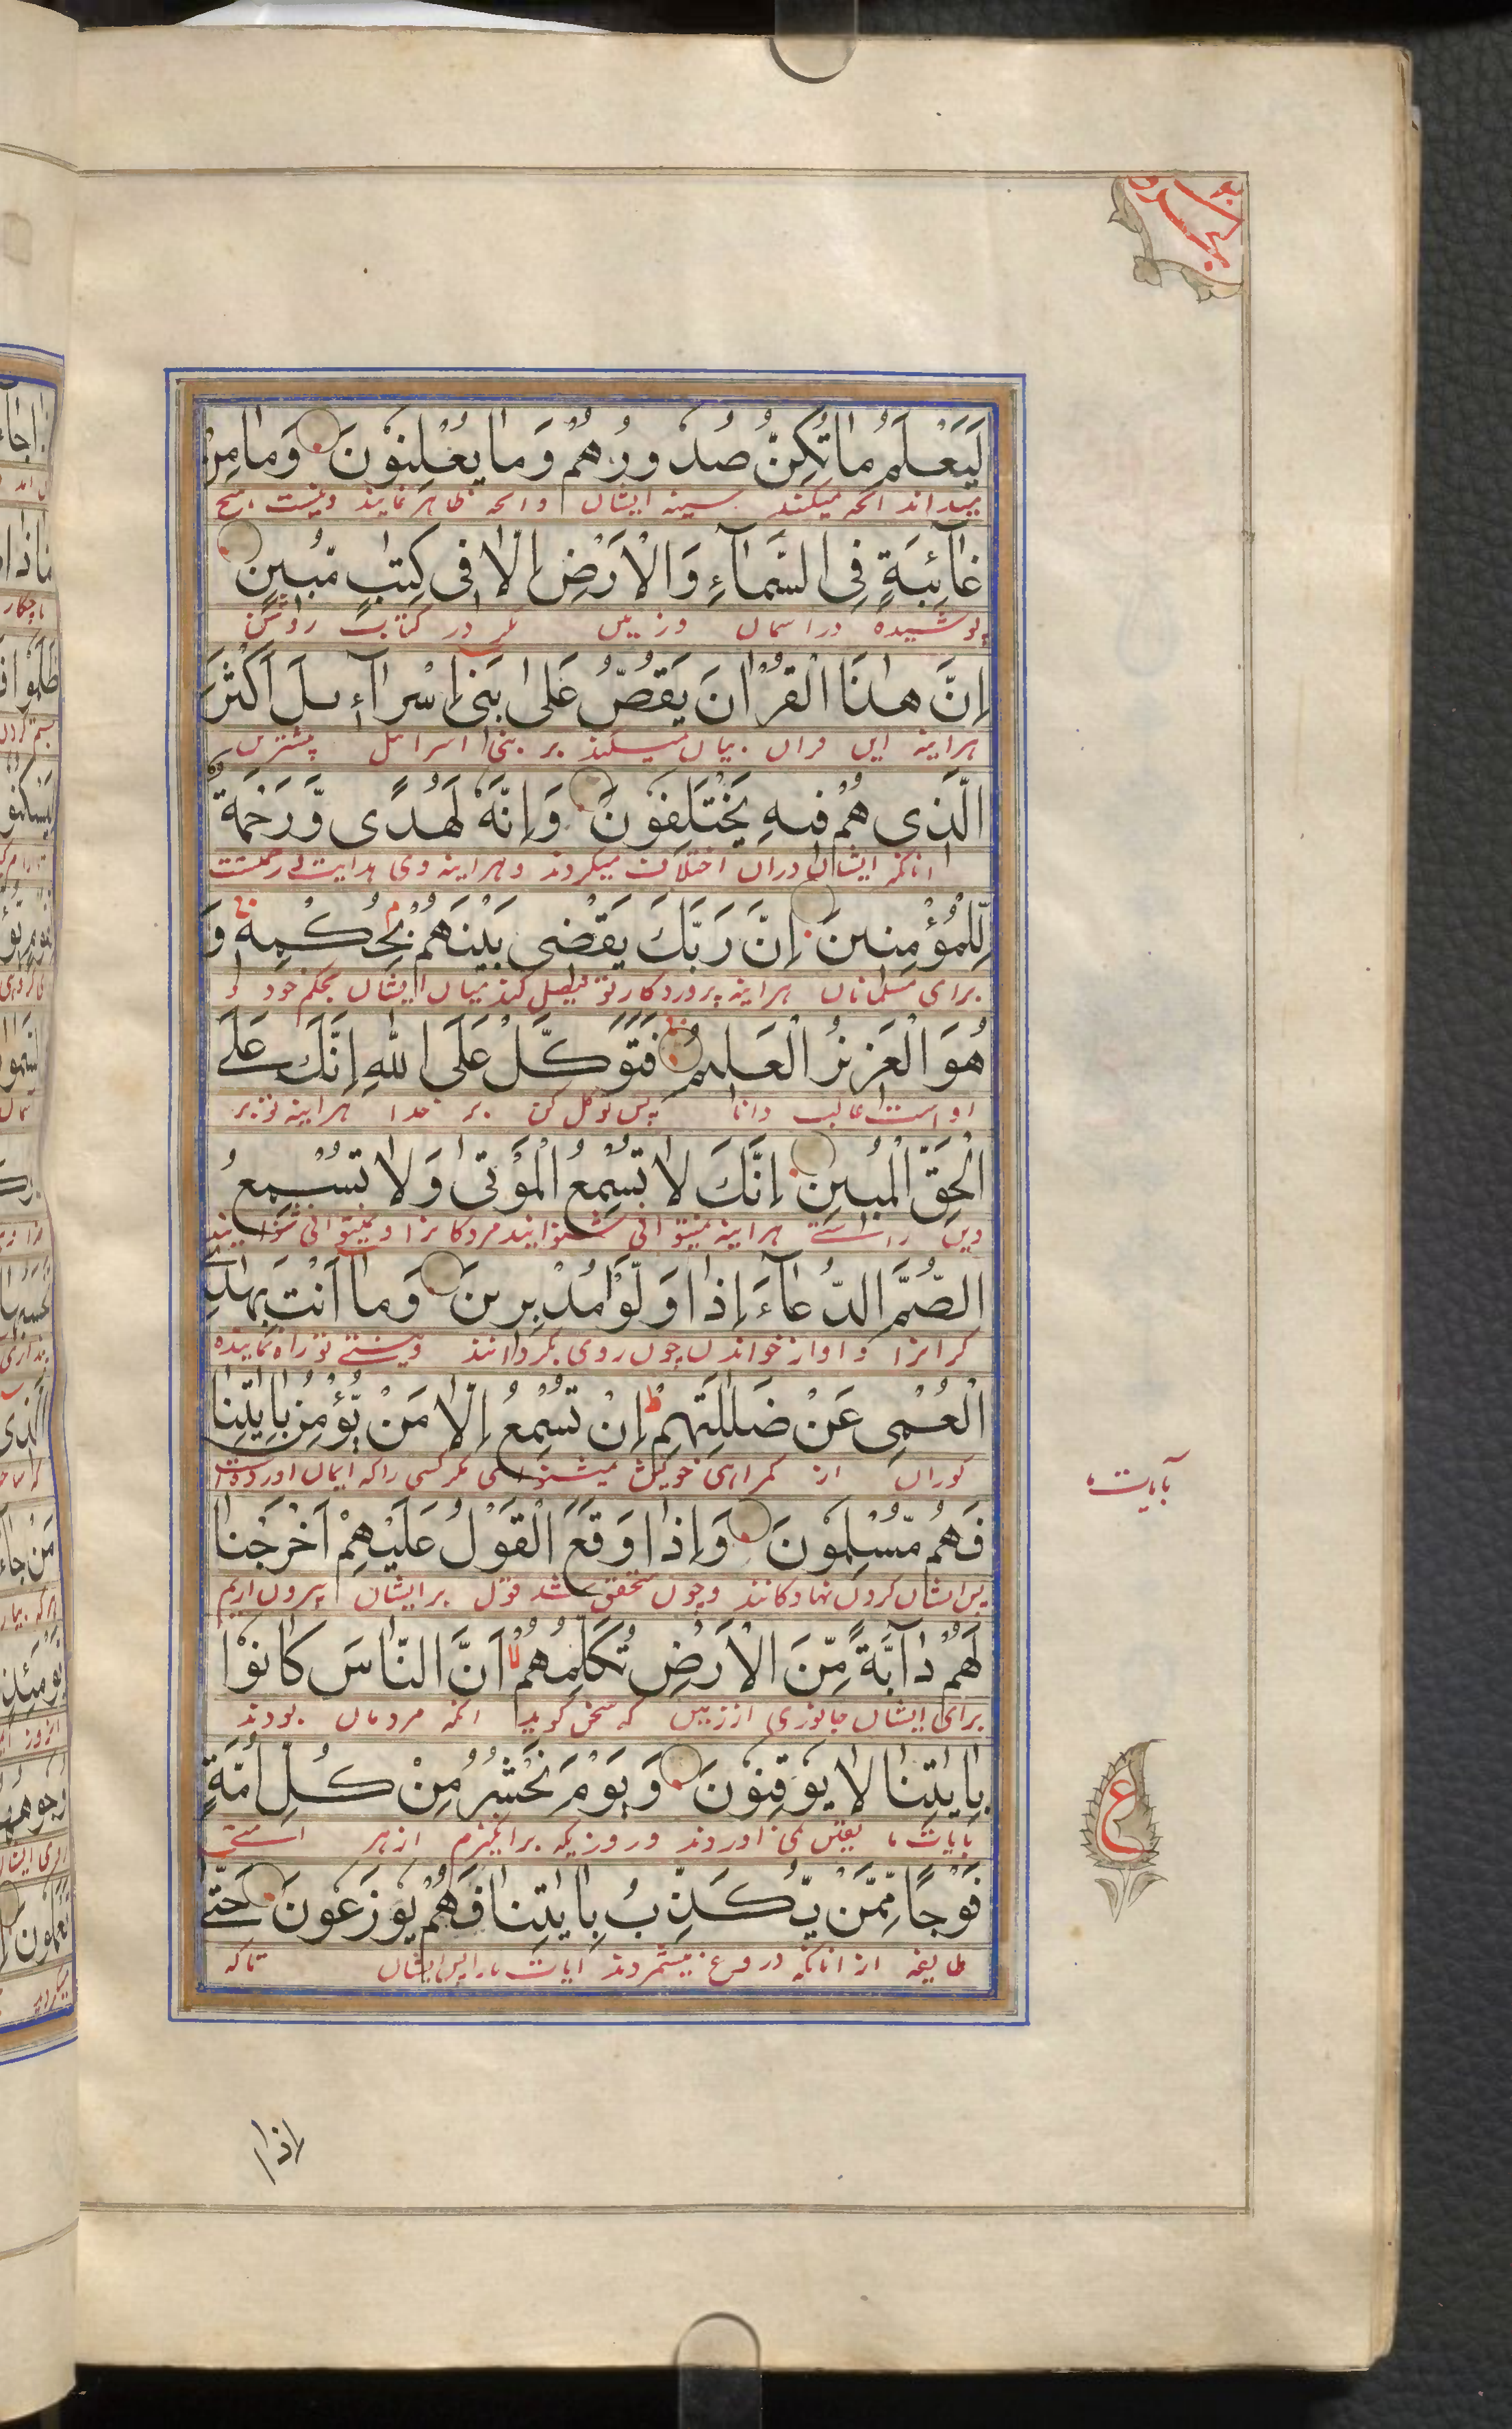 لَيَعْلَمُ مَا تُكِنُّ صُدُورُهُمْ وَمَا يُعْلِنُونَ وَمَا مِنْ
میداند انچه میکند سینه ایشان وانچه ظاهر نمایند ونیست هیچ
غَآئِبَةٍ فِى السَّمَآءِ وَالْاَرْضِ اِلَّا فِى كِتٰبٍ مُّبِينٍ
پوشیده در اسمان وزمین مگر در کتابست روشن
اِنَّ هٰذَا الْقُرْاٰنَ يَقُصُّ عَلٰى بَنِىْ اِسْرَآءِيلَ اَكْثَرَ
هراینه این قران بیان میکند بر بنی اسرائل بیشترین
الَّذِى هُمْ فِيهِ يَخْتَلِفُونَ وَاِنَّهٗ لَهُدًى وَّرَحْمَةٌ
انانکه ایشان دران اختلاف میکردند وهراینه وی هدایت ورحمتست
لِّلْمُؤْمِنِينَ اِنَّ رَبَّكَ يَقْضِى بَيْنَهُمْ بِحُكْمِهٖ وَ
برای مسلمانان هراینه پروردکار تو فیصل کند میان ایشان بحکم خود و
هُوَ الْعَزِيزُ الْعَلِيمُ فَتَوَكَّلْ عَلَى اللّٰهِ اِنَّكَ عَلَى
اوست غالب دانا پس توکل کن بر خدا هراینه تو بر
الْحَقِّ الْمُبِينِ اِنَّكَ لَا تُسْمِعُ الْمَوْتٰى وَلَا تُسْمِعُ
دین راستے هراینه نمیتوانی شنوانید مردکانرا ونمیتوانی شنوانید
الصُّمَّ الدُّعَآءَ اِذَا وَلَّوْا مُدْبِرِينَ وَمَآ اَنْتَ بِهٰدِى
کرانرا واواز خواندن چون روی بکردانند ونیستے تو راه نماینده
الْعُمْىِ عَنْ ضَلٰلَتِهِمْ اِنْ تُسْمِعُ اِلَّا مَنْ يُّؤْمِنُ بِاٰيٰتِنَا
کوران از کمراهی خویش نمیشنوانی مگر کسی را که ایمان اورده است
بآیات ما
فَهُمْ مُّسْلِمُونَ وَاِذَا وَقَعَ الْقَوْلُ عَلَيْهِمْ اَخْرَجْنَا
پس ایشان کردن نهادکانند وچون متحقق شد قول برایشان بیرون اریم
لَهُمْ دَآبَّةً مِّنَ الْاَرْضِ تُكَلِّمُهُمْ اَنَّ النَّاسَ كَانُوْا
برای ایشان جانوری از زمین که سخن کوید انکه مردمان بودند
بِاٰيٰتِنَا لَا يُوْقِنُونَ وَيَوْمَ نَحْشُرُ مِنْ كُلِّ اُمَّةٍ
بایات ما یقین نمی اوردند وروزیکه برانکیزم از هر امتے
ع
فَوْجًا مِّمَّنْ يُّكَذِّبُ بِاٰيٰتِنَا فَهُمْ يُوْزَعُونَ حَتّٰى
طایفه از انانکه دروغ میشمردند ایات ما را پس ایشان تا که
اذا